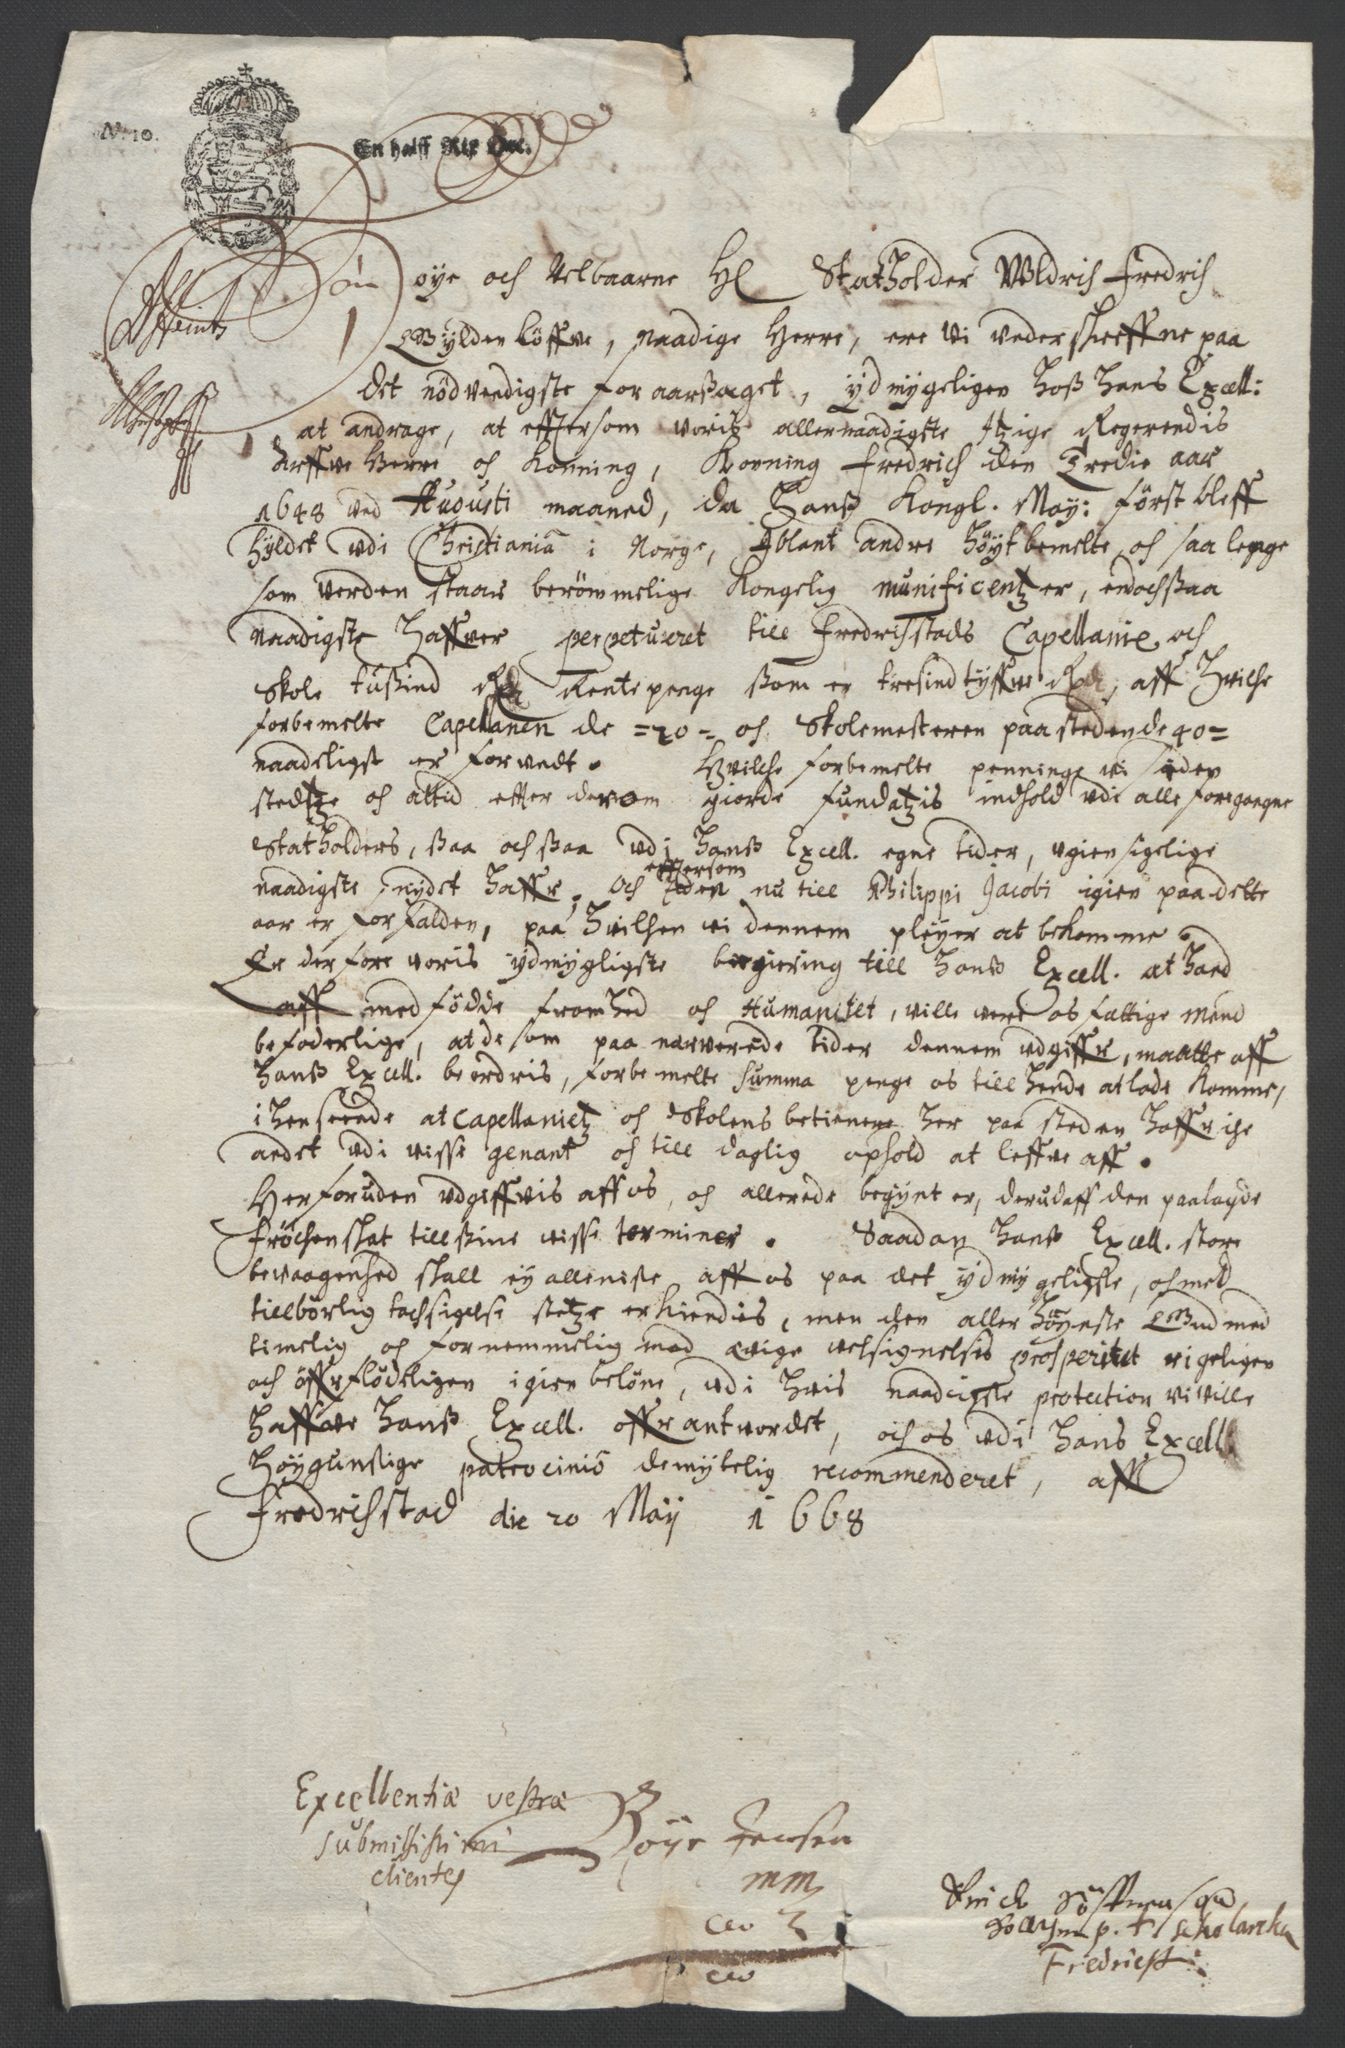 N. 10.
En halff Rix Dlr.
Høye och Velbaarne H Statholder Wldrich Fredrich
Gyldenløffve, Naadige Herre, ere vi underskreffne paa
det nödvendigste foraarßaget, ydmygeligen hoß hans Excell:
at andrage, at effterssom voris allernaadigste Itzige Regerendis
Arffve Herre och Konning, Konning Fredrich den Tredie aar
1648 ved Augusti maaned, da Hanß Kongl. May: först bleff
hyldet udi Christiania i Norge, Iblant andre höytbemelte och saa lenge
som verden staar berömmelige Kongelig munificentzer, endochßaa
naadigste haffver perpetueret till Fredrichstads Capellanie och
Skole tußind Rdr Rentepenge ßom er tresindtyffve Rdr, aff hvilche
forbemelte Capellanen de =20= och Skolemesteren paa steden de 40=
naadeligst er forundt. Hvilche forbemelte penninge vi siden
stedtze och altid effter derom giorde fundatzis indhold udi alle foregangne
Statholders, ßaa och ßaa udi hanß Excell. egne tider, ugiensigelige
naadigste nydet haffr, Och effterssom nu till Philippi Jacobi igien paa dette
aar er forfalden, paa hvilchen vi dennem pleyer at bekomme.
Er derfore voris ydmygligste begiering till hanß Excell. at hand
aff medfödde fromhed och Humanitet, ville vere os fattige Mend
beforderlige, at de som paa nerverende tider dennem udgiffr, maatte aff
hanß Excell. beordris, forbemelte summa penge os till hende at lade komme,
i henseende at Capellanietz och Skolens betienere her paa steden haffr iche
andet udi visse genant och till daglig ophold at leffve aff.
Herforuden udgiffvis aff os, och allerede begynt er, derudaff den paalagde
Fröchenskat till ßine visse terminer. Saadan hanß Excell. store
bevaagenhed skall ey alleniste aff os paa det ydmygeligste, och med
tillbörlig tachsigelse stetze erkiendis, men den aller höyeste Gud med
timelig och fornemmelig med evige velsignelsis prosperitet rigeligen
och öffrflödeligen igien belöne, udi hvis naadigste protection vi ville
haffve hanß Excell. offrantvordet, och os udi hans Excell
höygunstige patrociniö demytelig recommenderet, aff
Fredrichstad die 20 Maij 1668
Excellentiæ vestræ
submississimi
clientes
Böye Jensen
mm
p. t. scholarcha
Fredrichst: